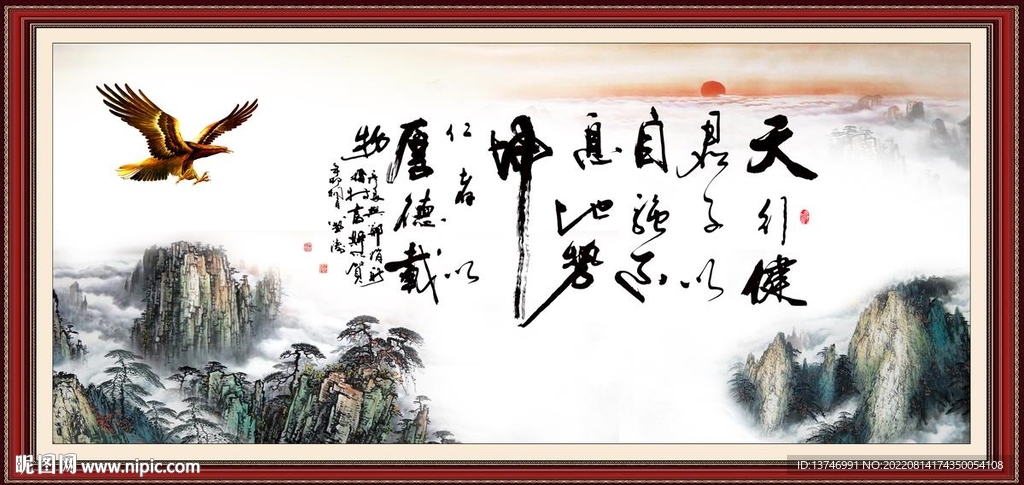 天行健
君子以
自强不
息地势
坤
仁者以
厚德载
物
昵图网 www.nipic.com
ID:13746991 NO:20220814174350054108